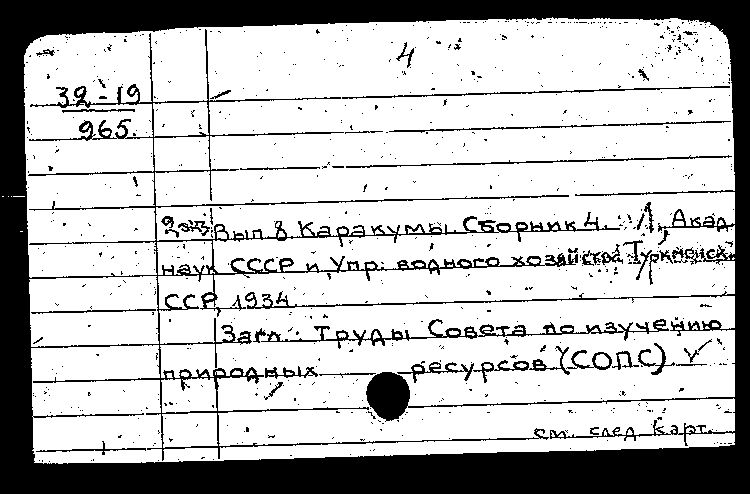 4
32-19
965.
2 экз Вып 8. Каракумы. Сборник 4. Л., Акад.
наук СССР и Упр. водного хозяйства Туркменск.
ССР, 1934.
Загл.: Труды Совета по изучению
природных ресурсов (СОПС) V
см. след карт.